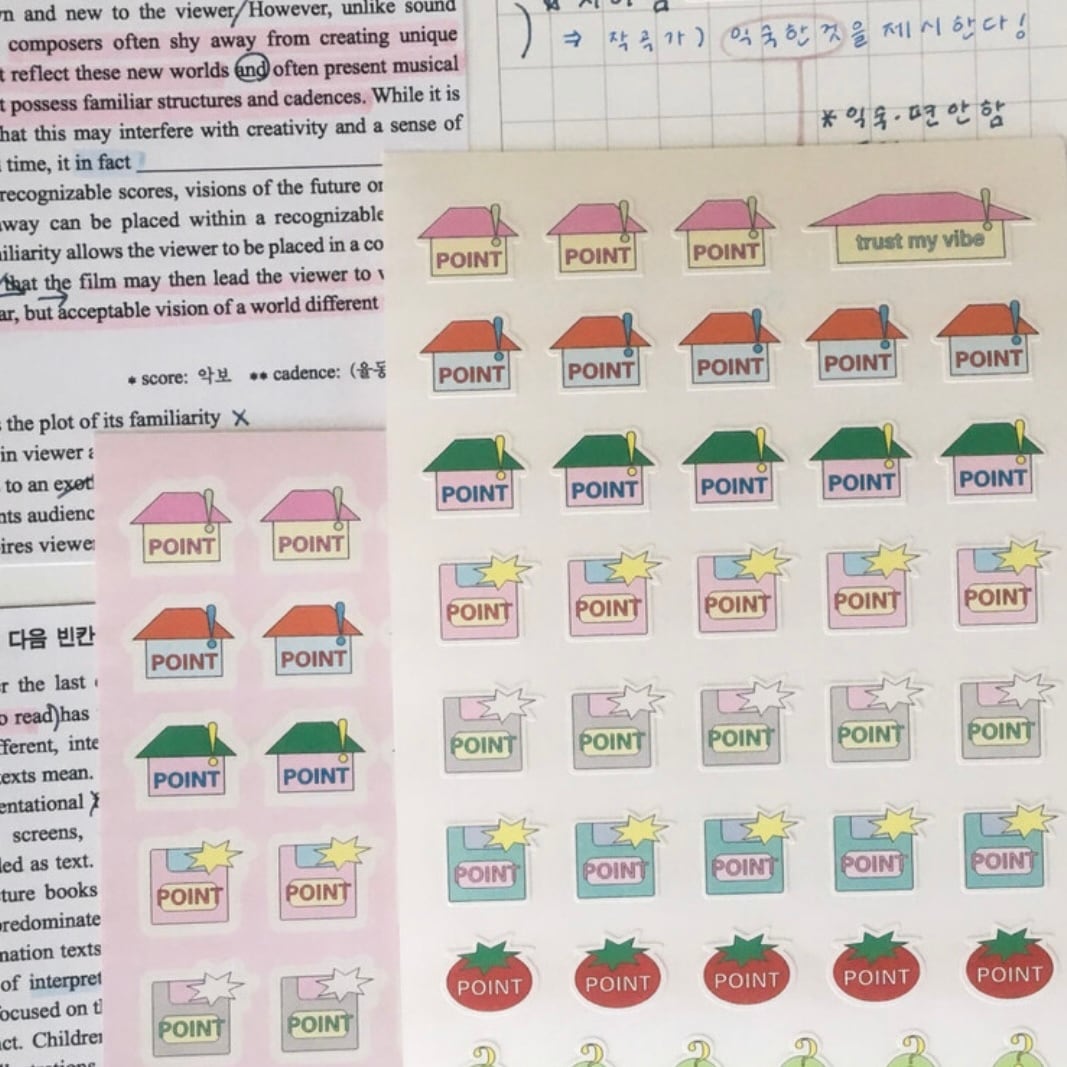 n and new to the viewer, However, unlike sound
composers often shy away from creating unique
t reflect these new worlds and often present musical
t possess familiar structures and cadences. While it is
hat this may interfere with creativity and a sense of
time, it in fact
recognizable scores, visions of the future or
away can be placed within a recognizable
iliarity allows the viewer to be placed in a co
that the film may then lead the viewer to
ar, but acceptable vision of a world different
* score: 악보 ** cadence: (율동
the plot of its familiarity X
in viewer
to an exoti
nts audienc
ires viewe
다음 빈칸
r the last
o read) has
fferent, inte
texts mean.
entational
screens,
led as text.
ture books
predominate
mation texts
of interpret
focused on t
ct. Children
⇒ 작곡가) 익숙한 것을 제시한다!
* 익숙·면 안 함
POINT POINT POINT trust my vibe
POINT POINT POINT POINT POINT
POINT POINT POINT POINT POINT
POINT POINT POINT POINT POINT
POINT POINT POINT POINT POINT
POINT POINT POINT POINT POINT
POINT POINT POINT POINT POINT
POINT POINT
POINT POINT
POINT POINT
POINT POINT
POINT POINT